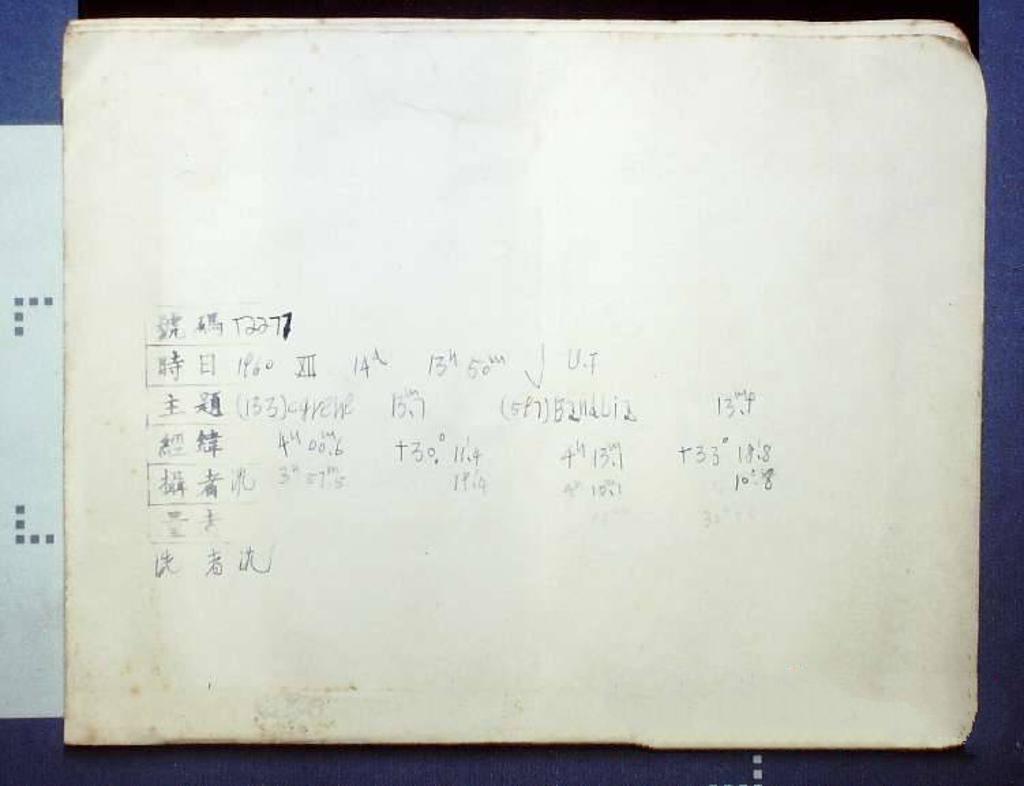 號碼 T2277
時日 1960 XII 14d 13h 50m U.T
主題 (133)cyrene 13m.7 (597)Bandusia 13m.9
經緯 4h 00m.6 +30° 11′.4 4h 13m.1 +33° 18′.8
攝者沈 3h 57m.5 19′.4 4h 10m.1 10′.8
洗者沈